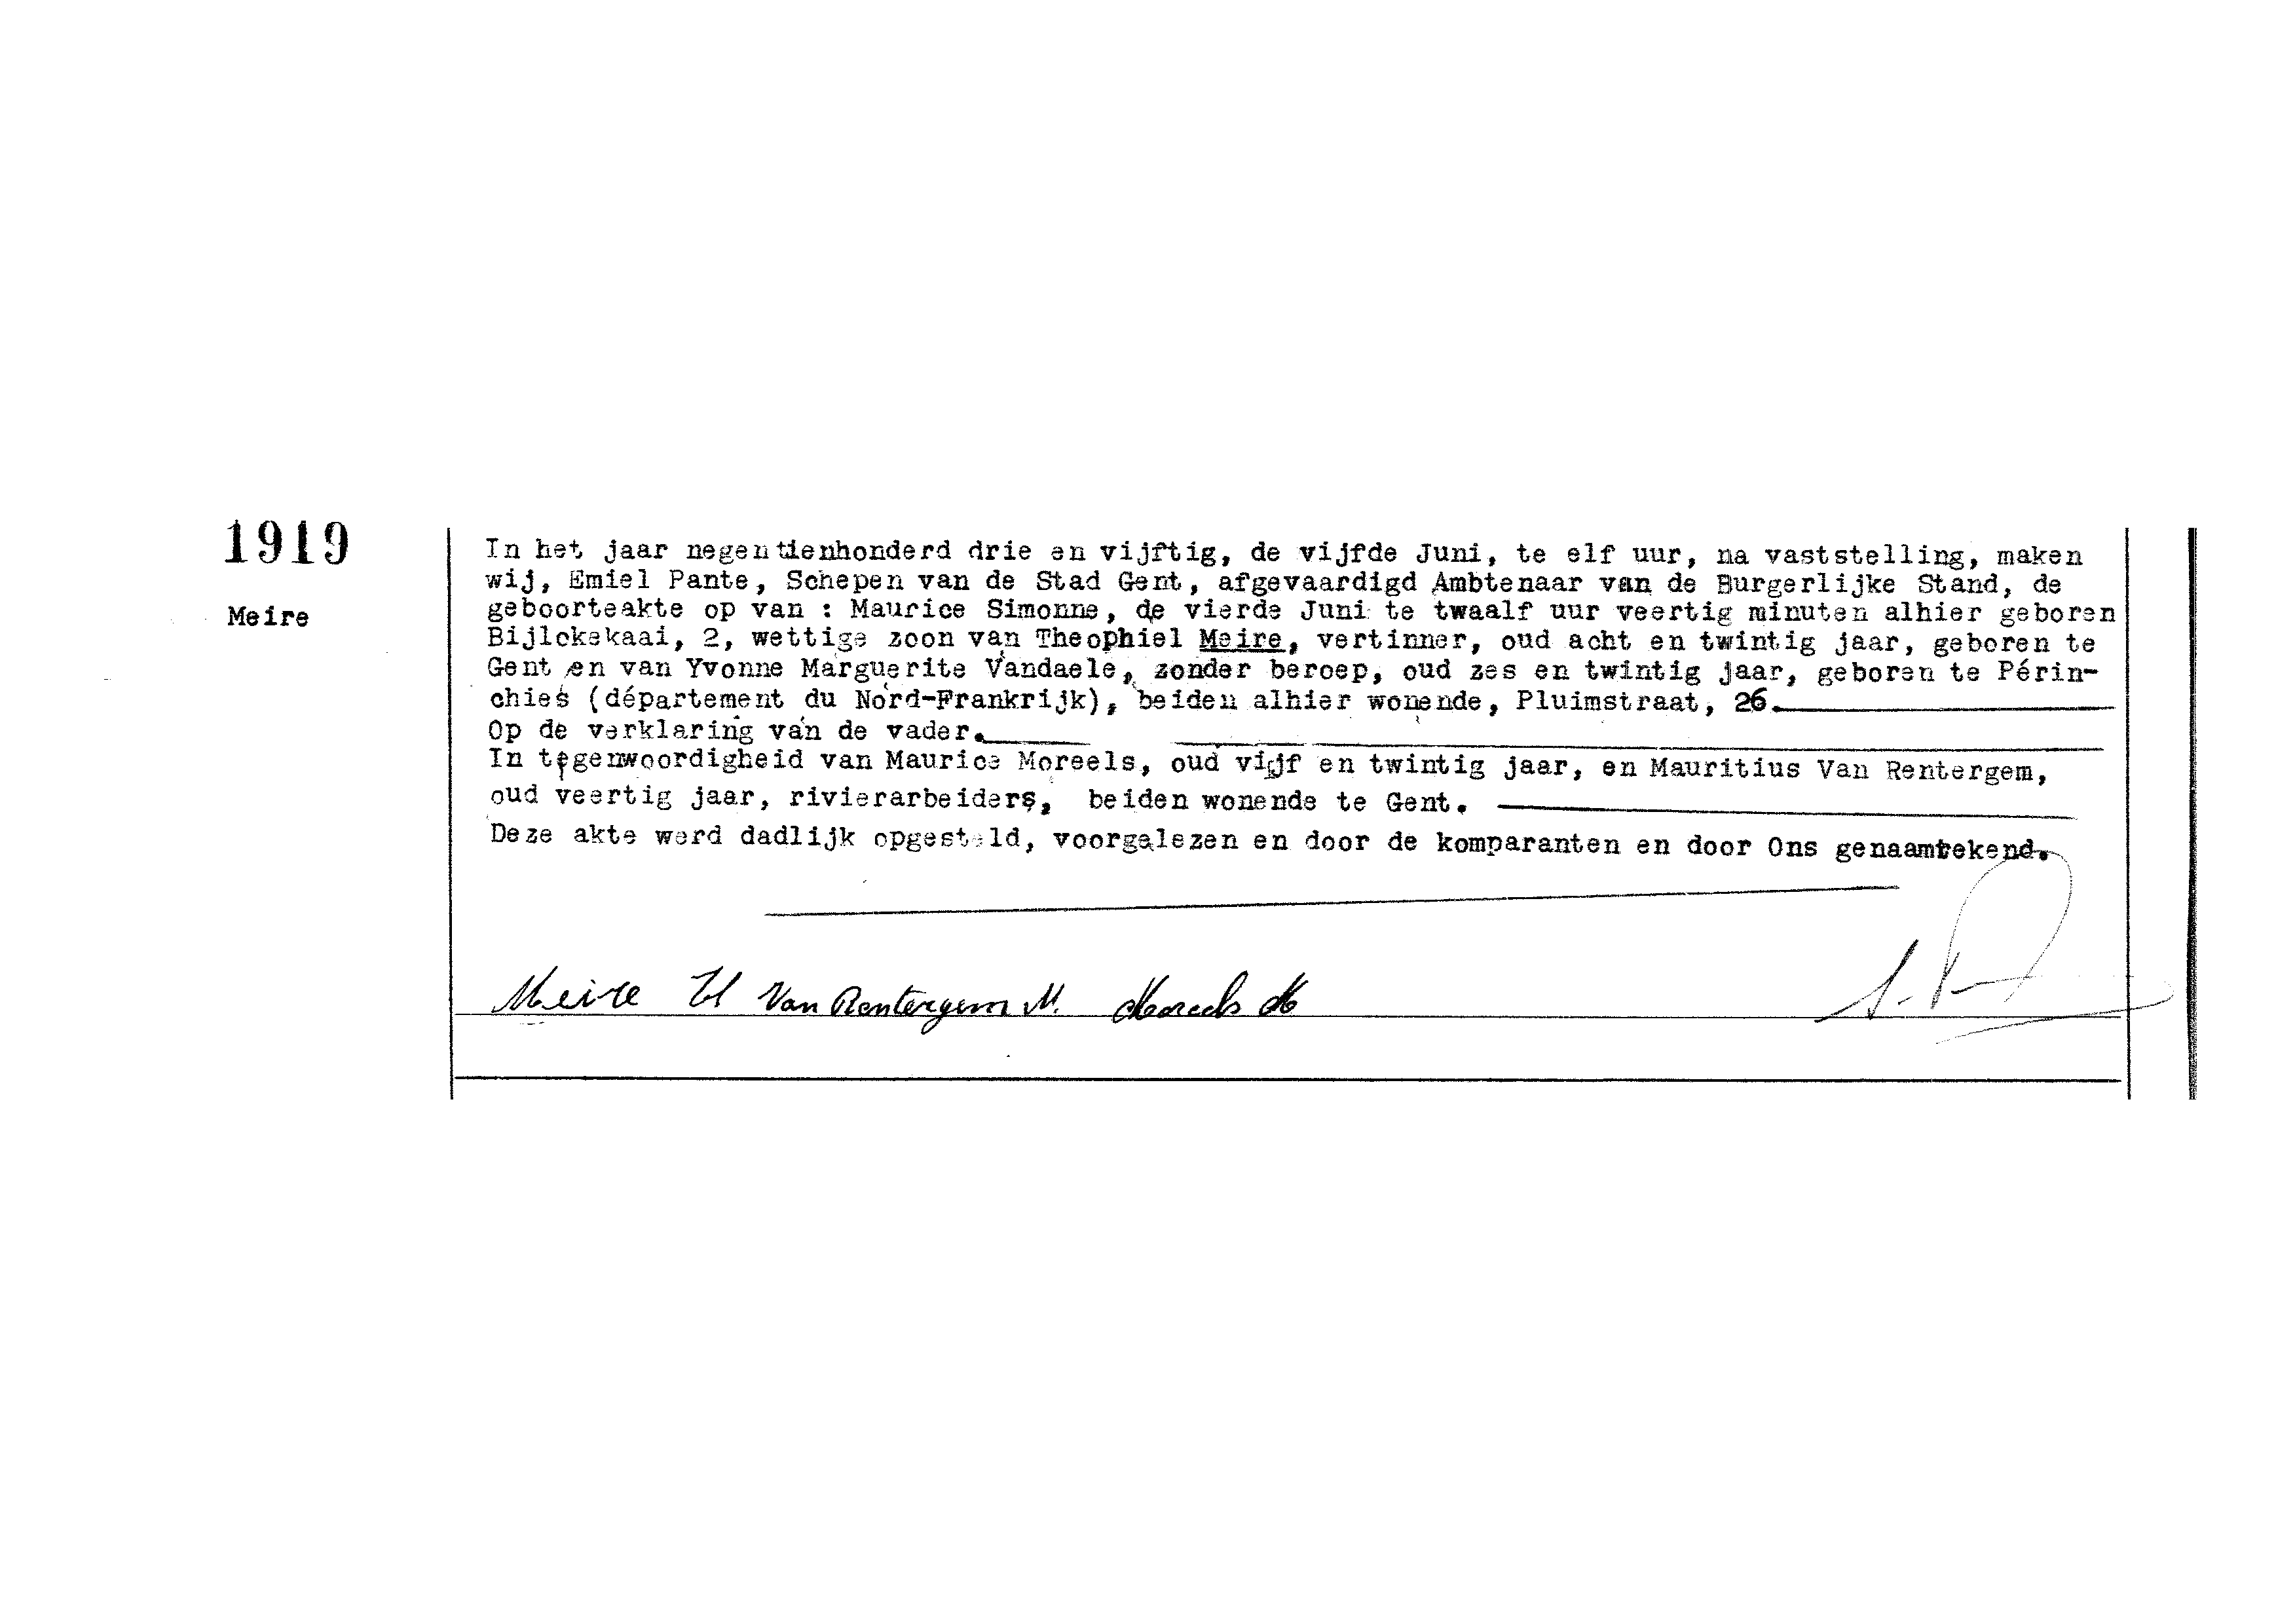 1919
Meire
In het jaar negentienhonderd drie en vijftig, de vijfde Juni, te elf uur, na vaststelling, maken
wij, Emiel Pante, Schepen van de Stad Gent, afgevaardigd Ambtenaar van de Burgerlijke Stand, de
geboorteakte op van : Maurice Simonne, de vierde Juni te twaalf uur veertig minuten alhier geboren
Bijlokekaai, 2, wettige zoon van Theophiel Meire, vertinner, oud acht en twintig jaar, geboren te
Gent en van Yvonne Marguerite Vandaele, zonder beroep, oud zes en twintig jaar, geboren te Périn-
chies (département du Nord-Frankrijk), beiden alhier wonende, Pluimstraat, 26.
Op de verklaring van de vader.
In tegenwoordigheid van Maurice Moreels, oud vijf en twintig jaar, en Mauritius Van Rentergem,
oud veertig jaar, rivierarbeiders, beiden wonende te Gent.
Deze akte werd dadlijk opgesteld, voorgelezen en door de komparanten en door Ons genaamtekend.
Meire Van Rentergem M. Moreels M